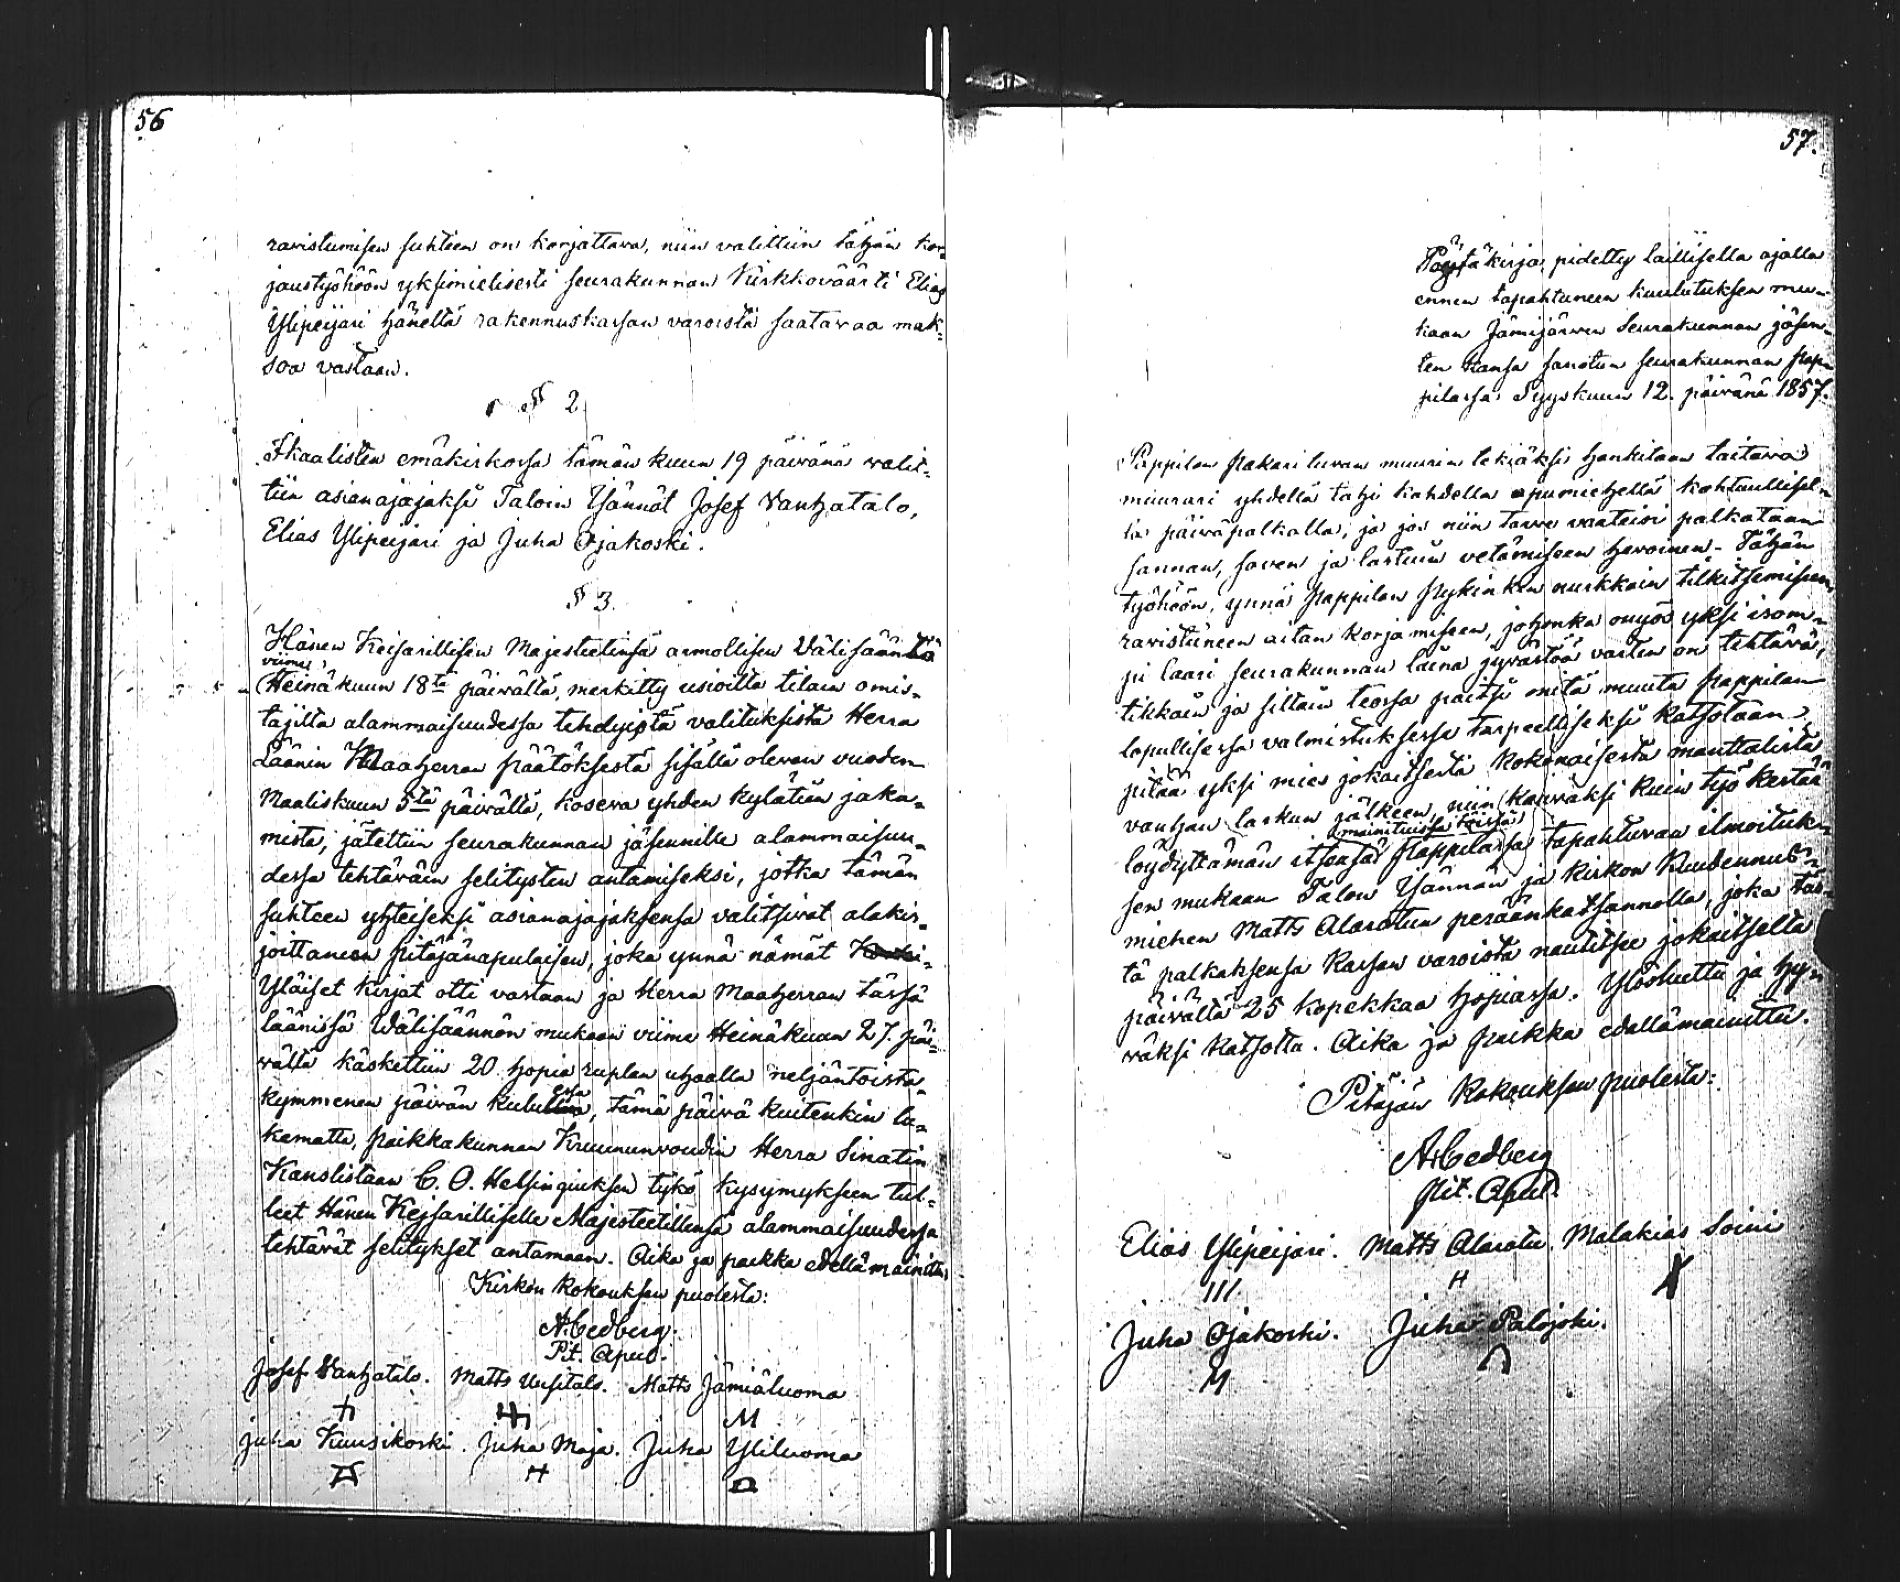 56
ravistumisen suhteen on korjattava, niin valittiin tähän kor=
jaustyöhöön yksimielisesti seurakunnan Kirkkoväärti Elias
Ylipeijari häneltä rakennuskassan varoista saatavaa mak=
soa vastaan.
§ 2.
Ikaalisten emäkirkossa tämän kuun 19 päivänä valit=
tiin asianajajaksi Taloin Isännät Josef Vanhatalo,
Elias Ylipeijari ja Juha Ojakoski.
§ 3.
Hänen Keisarillisen Majesteetinsä armollisen Välisääntö
viime
Heinäkuun 18ta päivältä, merkitty usioilta tilain omis=
tajilta alammaisuudessa tehdyistä valituksista Herra
Läänin Maaherran päätöksestä sisällä olevan vuoden
Maaliskuun 5tä päivältä, koseva yhden kylätien jaka=
mista, jätettiin seurakunnan jäsennille alammaisuu=
dessa tehtäväin selitysten antamiseksi, jotka tämän
suhteen yhteiseksi asianajajaksensa valitsivat alakir=
joittaneen pitäjänapulaisen, joka ynnä nämät
Yläiset kirjat otti vastaan ja Herra Maaherran tässä
läänissä Välisäännön mukaan viime Heinäkuun 27. päi=
vältä käskettiin 20 hopia ruplan uhaalla neljäntoista=
kymmenen päivän kuluessa, tämä päivä kuitenkin lu=
kematta, paikkakunnan Kruununvoudin Herra Sinatin
Kanslistaan C. O. Helsingiuksen tykö kysymykseen tul=
leet Hänen Kejsarilliselle Majesteetillensä alammaisuudessa
tehtävät selitykset antamaan. Aika ja paikka edellämainittu
Kirkon kokouksen puolesta:
A. Cedberg.
Pit. Apul.
Josef Vanhatalo. Matts Uusitalo. Matts Jämiäluoma
M
Juha Kuusikoski. Juha Maja. Juha Yliluoma
H
57.
Pöytäkirja pidetty laillisella ajalla
ennen tapahtuneen kuulutuksen mu=
kaan Jämijärven Seurakunnan jäsen=
ten kansa sanotun seurakunnan pap=
pilassa Syyskuun 12. päivänä 1857.
Pappilan pakarituvan muurin tekiäksi hankitaan taitava
muurari yhdellä tahi kahdella apumiehellä kohtuullisel=
la päiväpalkalla, ja jos niin tarve vaateisi palkataan
sannan, saven ja lastuin vetämiseen hevoinen. Tähän
työhöön, ynnä pappilan nurkkain tilkitsemiseen,
ravistuneen aitan korjamiseen, johonka myös yksi isom=
pi laari seurakunnan laina jyvästöä varten on tehtävä,
tikkain ja siltain teossa paitsi mitä muuta pappilan
lopullisessa valmistuksessa tarpeelliseksi katsotaan,
pitää yksi mies jokaitsesta kokonaisesta manttalista
vanhan laskun jälkeen, niin kauvaksi kuin työ kestää
mainituissa töissä
löydyttämän itsensä pappilassa tapahtuvan ilmoituk=
sen mukaan Talon Isännän ja kirkon Kuudennus=
miehen Matts Alarotun peräänkatsannolla, joka täs=
tä palkaksensa Kassan varoista nautitsee jokaitselta
päivältä 25 kopekkaa hopiassa. Ylösluettu ja hy=
väksi katsottu. Aika ja paikka edellämainittu.
Pitäjän Kokouksen puolesta:
A. Cedberg
Pit. Apul.
Elias Ylipeijari. Matts Alarotu. Malakias Soini
III. H X
Juha Ojakoski. Juha Palojoki.
M